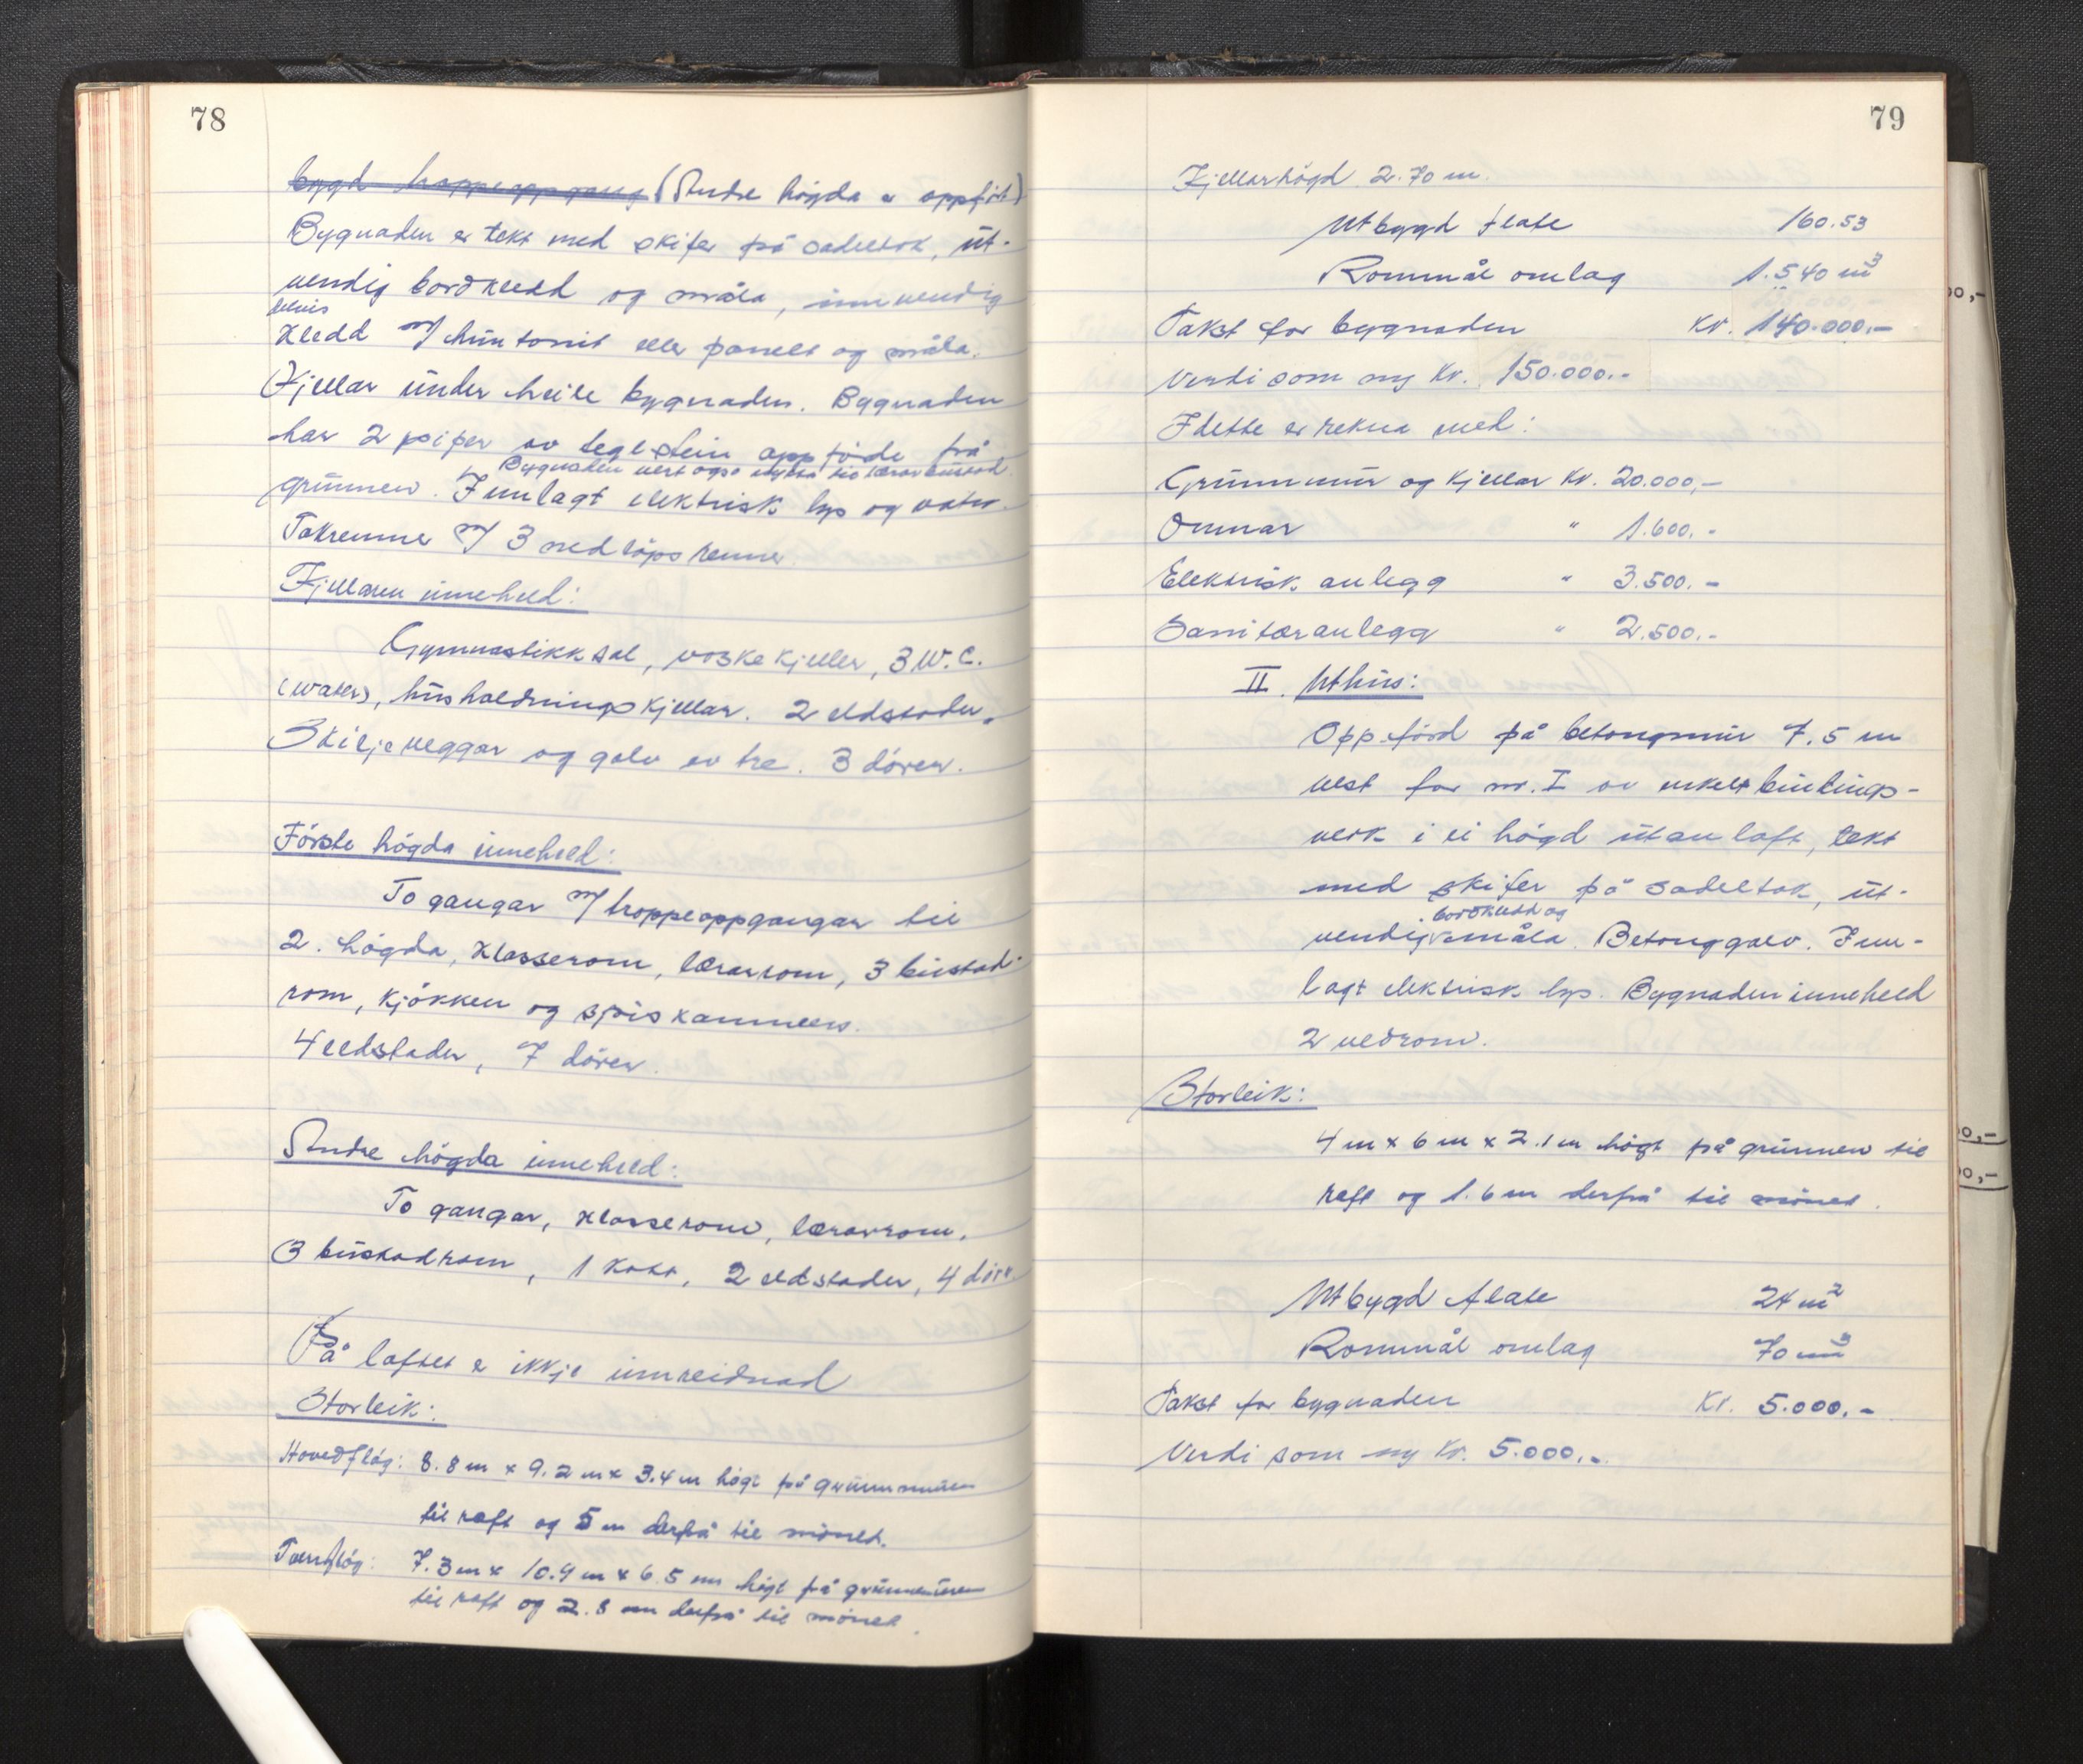 78
bygd trappeoppgang (Andre högda er oppfört)
Bygnaden er tekt med skifer på sadeltak, ut-
vendig bordkledd og måla, innvendig
delvis
kledd m/ huntonit eller panelt og måla.
Kjellar under heile bygnaden. Bygnaden
har 2 piper av teglstein oppførde frå
Bygnaden vert også nytta til lærarbustad.
grunnen. Innlagt elektrisk lys og vatn.
Takrenner m/ 3 nedløpsrenner.
Kjellaren inneheld:
Gymnastikksal, vaskekjeller, 3 W.C.
(water), husholdningskjellar. 2 eldstader.
Skiljeveggar og golv av tre. 3 dörer.
Förste högda inneheld:
To gangar m/ trappeoppgangar til
2. högda, klasserom, lærarrom, 3 bustad-
rom, kjökken og spiskammers.
4 eldstader, 7 dörer.
Andre högda inneheld:
To gangar, klasserom, lærarrom,
3 bustadrom, 1 kott, 2 eldstader, 4 dörer.
På loftet er ikkje innreidnad
Storleik:
Hovedflöy: 8.8 m x 9.2 m x 3.4 m högt frå grunnmuren
til raft og 5 m derfrå til mönet.
Tverrflöy: 7.3 m x 10.9 m x 6.5 m högt frå grunnmuren
til raft og 2.8 m derfrå til mönet.
79
Kjellarhögd 2.70 m.
Utbygd flate 160.53
Rommål omlag 1.540 m³
Takst for bygnaden kr. 140.000.-
Verdi som ny kr. 150.000.-
I dette er rekna med:
Grunnmur og kjellar kr. 20.000,-
Omnar " 1.600.-
Elektrisk anlegg " 3.500.-
Sanitæranlegg " 2.500.-
II. Uthus:
Oppförd på betongmur 7.5 m
vest for nr. I av enkelt bindings-
verk i ei högd utan loft, tekt
med skifer på sadeltak, ut-
bordkledd og
vendig måla. Betonggolv. Inn-
lagt elektrisk lys. Bygnaden inneheld
2 vedrom.
Storleik:
4 m x 6 m x 2.1 m högt frå grunnen til
raft og 1.6 m derfrå til mönet.
Utbygd flate 24 m²
Rommål omlag 70 m³
Takst for bygnaden Kr. 5.000.-
Verdi som ny kr. 5.000.-